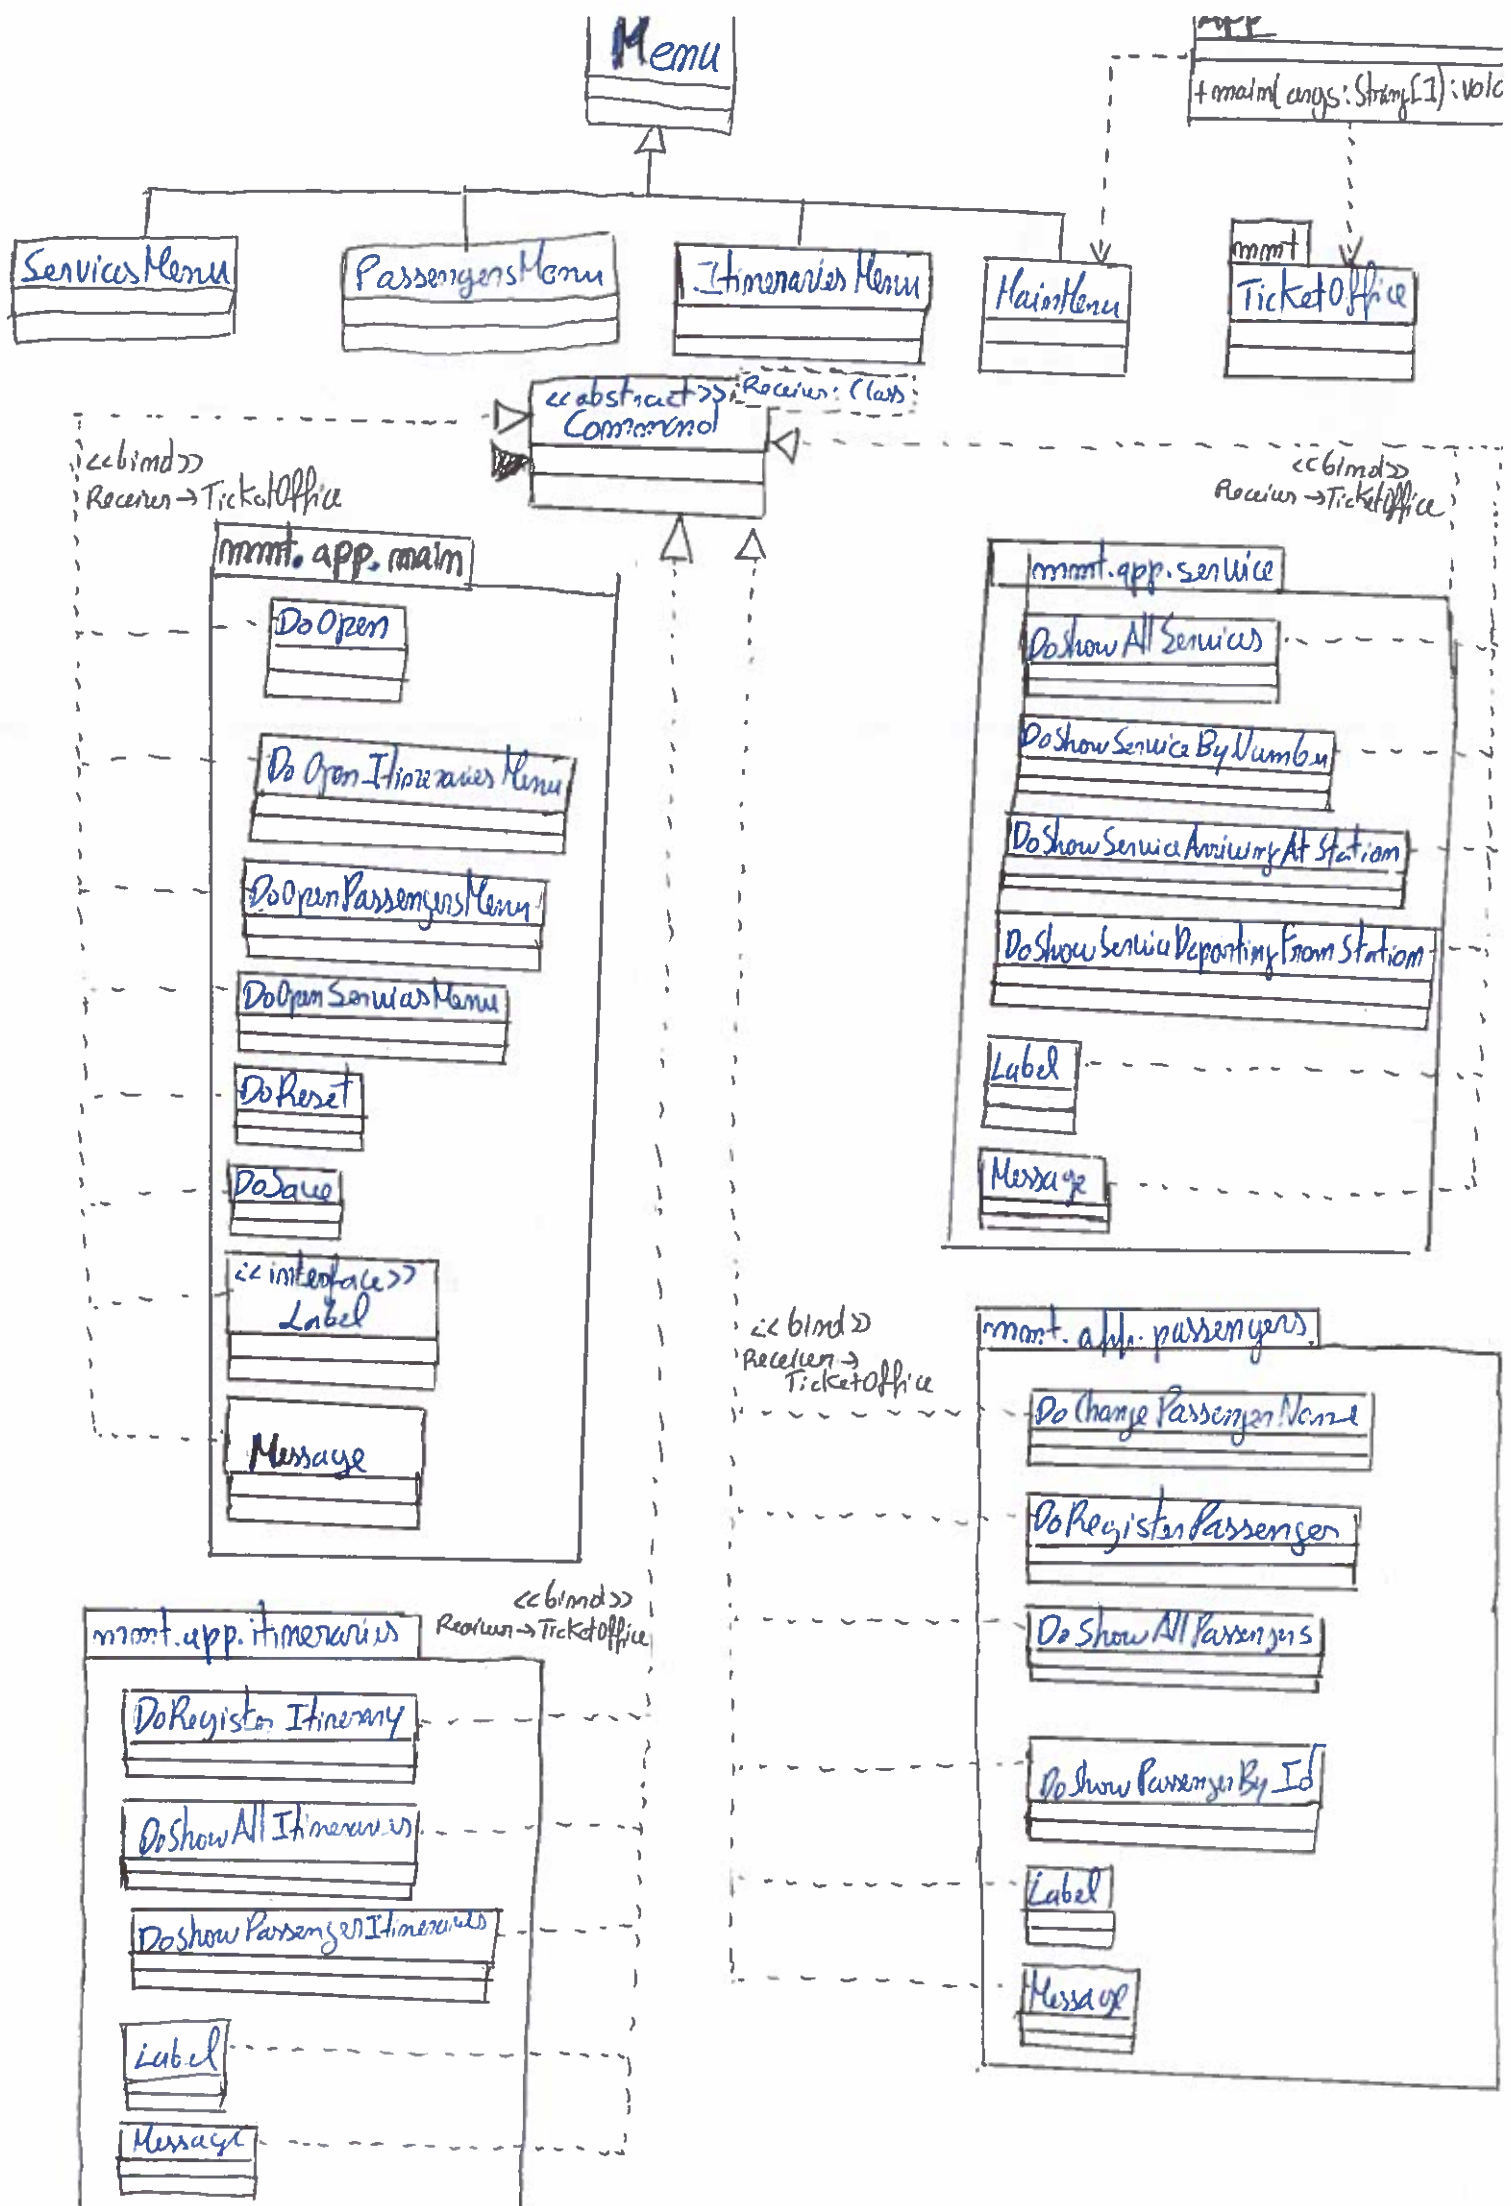 Menu
App
+main(args:String[]):void
ServicesMenu
PassengersMenu
ItinerariesMenu
MainMenu
mmt
TicketOffice
<<abstract>>
Command
Receiver: Class
<<bind>>
Receiver→TicketOffice
<<bind>>
Receiver→TicketOffice
mmt.app.main
DoOpen
DoOpenItinerariesMenu
DoOpenPassengersMenu
DoOpenServicesMenu
DoReset
DoSave
<<interface>>
Label
Message
mmt.app.service
DoShowAllServices
DoShowServiceByNumber
DoShowServiceArrivingAtStation
DoShowServiceDepartingFromStation
Label
Message
<<bind>>
Receiver→
TicketOffice
mmt.app.passengers
DoChangePassengerName
DoRegisterPassenger
DoShowAllPassengers
DoShowPassengerById
Label
Message
<<bind>>
Receiver→TicketOffice
mmt.app.itineraries
DoRegisterItinerary
DoShowAllItineraries
DoShowPassengerItineraries
Label
Message